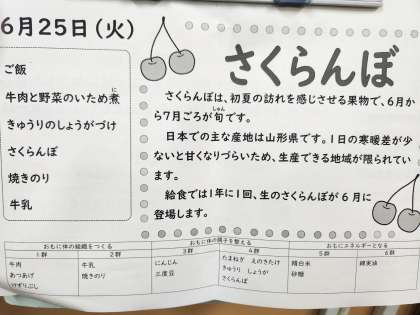 6月25日(火)
ご飯
牛肉と野菜のいため煮
に
きゅうりのしょうがづけ
さくらんぼ
焼きのり
牛乳
さくらんぼ
さくらんぼは、初夏の訪れを感じさせる果物で、6月か
ら7月ごろが旬です。
しゅん
日本での主な産地は山形県です。1日の寒暖差が少
ないと甘くなりづらいため、生産できる地域が限られてい
ます。
給食では1年に1回、生のさくらんぼが6月に
登場します。
おもに体の組織をつくる
おもに体の調子を整える
おもにエネルギーとなる
1群 2群 3群 4群 5群 6群
牛肉 牛乳 にんじん たまねぎ えのきたけ 精白米 綿実油
あつあげ 焼きのり 三度豆 きゅうり しょうが 砂糖
けずりぶし さくらんぼ